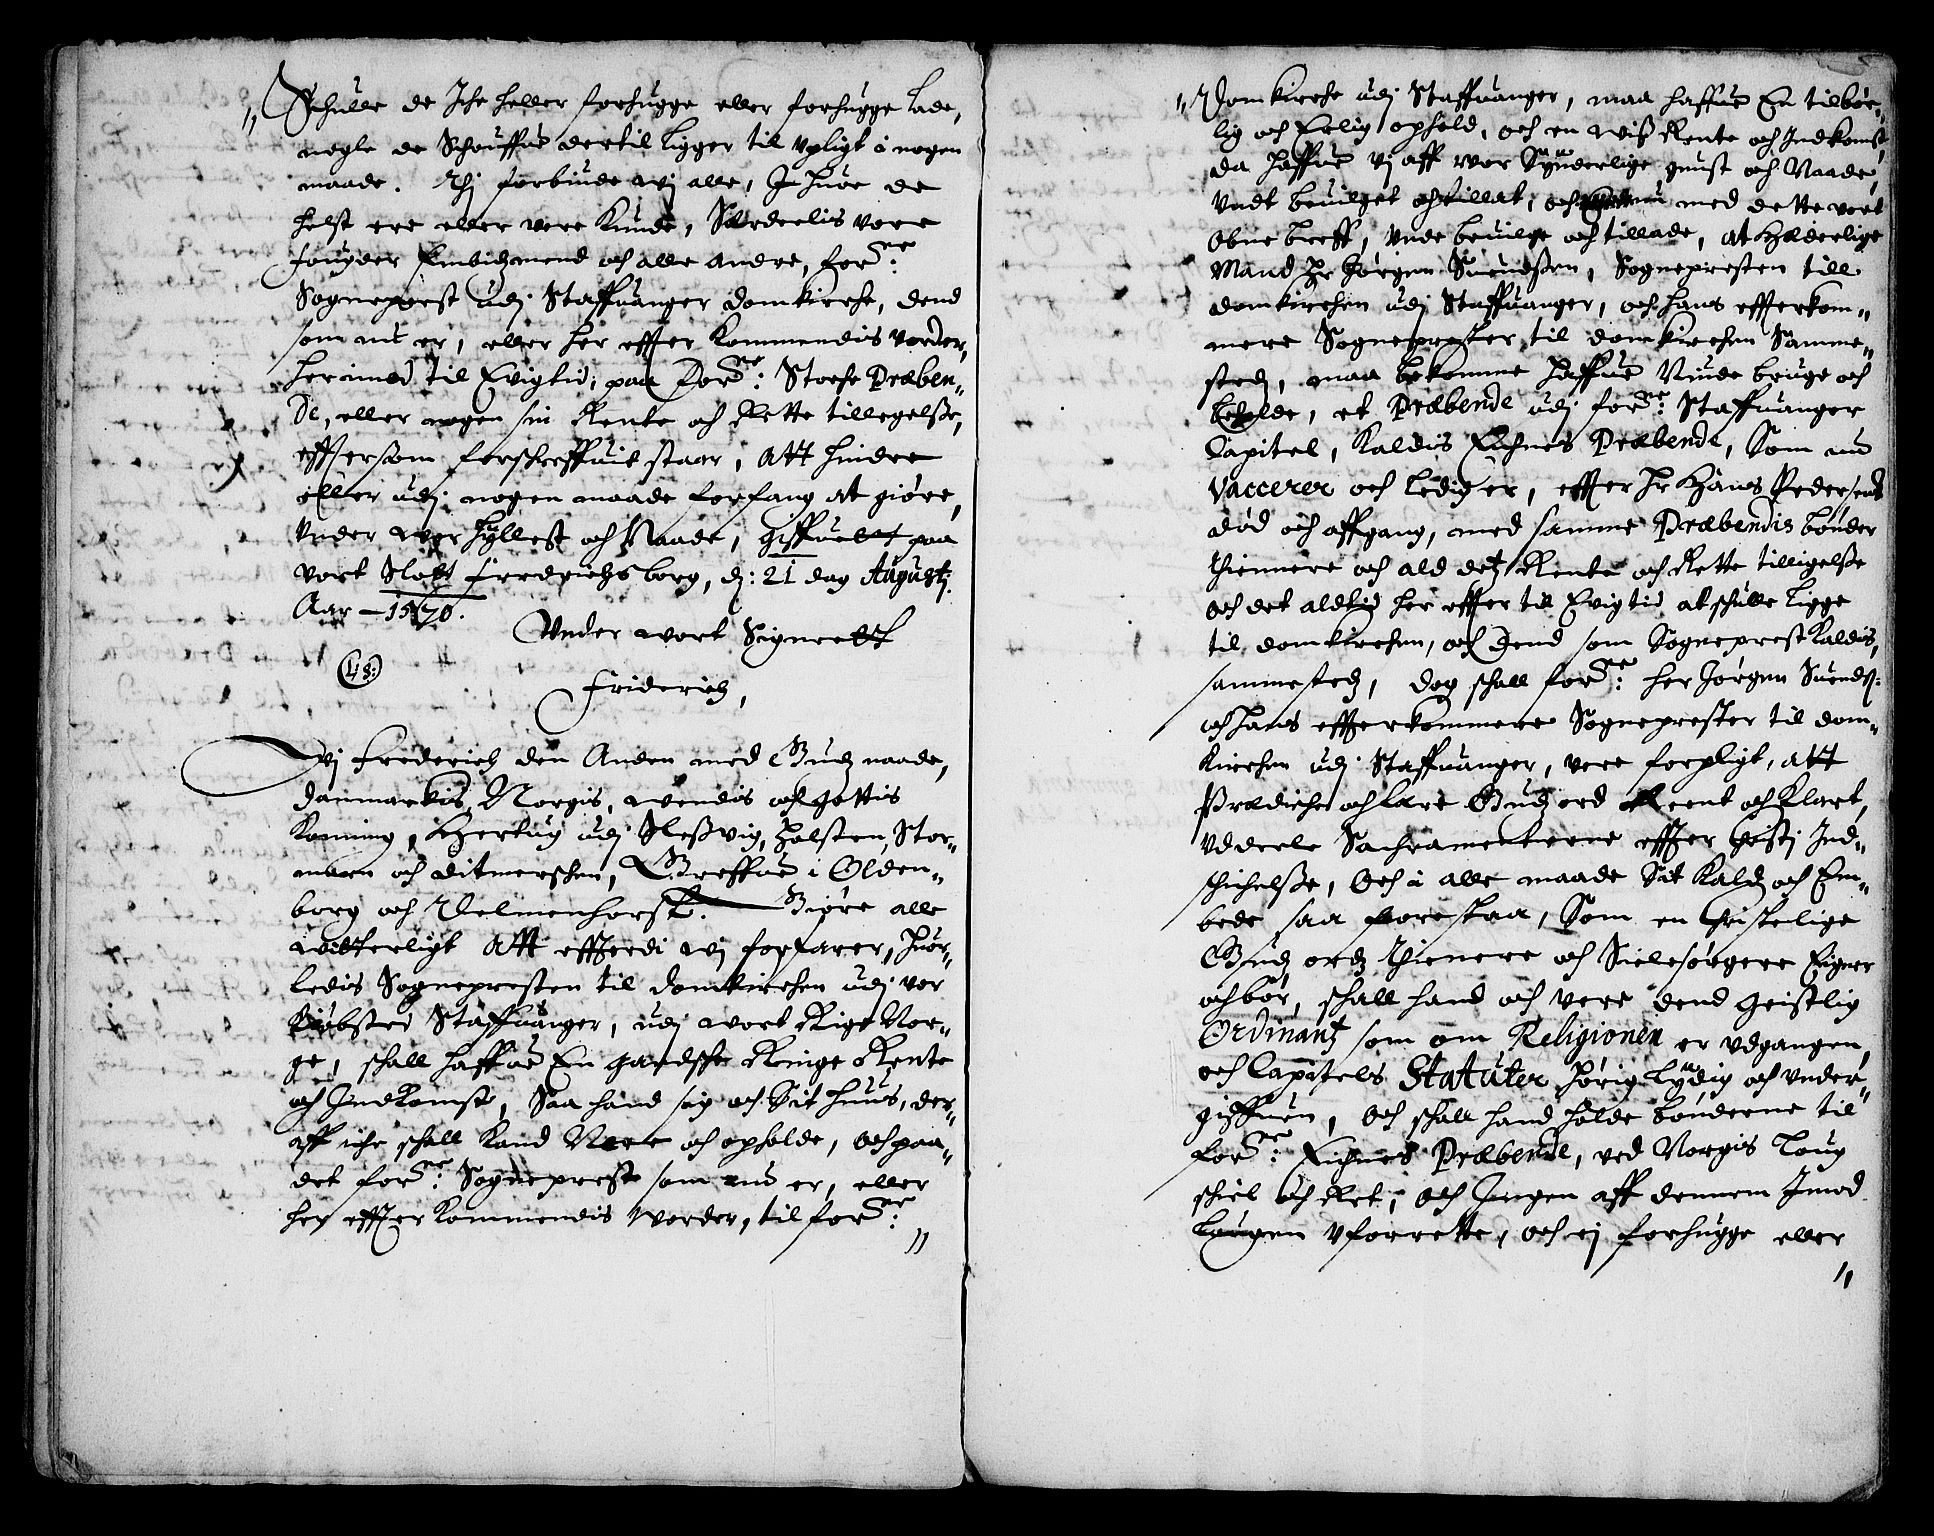 " Schulle de Iche heller forhugge eller forhugge lade,
nogle de Schouffue dertil ligger til vpligt i nogen
maade. Thj forbiude wj alle, J huor de
helst ere eller vere Kunde, Særdeelis vore
fougder Embidzmend och alle andre, forne:
Sogneprest udj Staffuanger domkirche, dend
som nu er, eller her effter Kommendis vorder,
herimod til Evigtid, paa Forne: Præben-
de, eller nogen sin Rente och Rette tillegelsße,
effersom forschreffuit staar, Att hindre
eller udj nogen maade forfang at giøre,
Vnder wor hyllest och Naade, giffuelt paa
vort Slott Fredrichsborg, d: 21 dag Augustj.
Aar – 1570.
Vnder wort Signeedt
(L: S:)
Friderich,
Wj Frederich den Anden med Gudz naade,
Danmarkis, Norgis, wendis och gottis
Koning, Hertug udj Sleßvig, Holsten, Stor-
marn och Ditmerschen, Greffue i Olden-
borg och Delmenhorst. Giøre alle
witterligt Att effterdi wj forfarer, huor-
ledis Sognepresten til domkirchen udj vor
Kiøbsted Staffuanger, udj wort Rige Nor-
ge, schall haffue En gandsche Ringe Rente
och Indkomst, Saa hand sig och Sit huus, der-
aff iche schall Kand Nere och opholde, och paa-
det forne: Sogneprest som nu er, eller
her effter Kommendis Worder, til forne:
"
" Domkirche udj Staffuanger, maa haffue En tilbør-
lig och Erlig ophold, och en wiß Rente och Indkomst,
da haffue vj aff wor Synderlige gunst och Naade,
Vndt beuilget och tillat, och med dette vort
Obne breff, Vnde beuilge och tillade, at Hæderlige
Mand Hr Jørgen Suendßen, Sognepresten till
domkirchen udj Staffuanger, och hans effterkom-
mere Sogneprester til domkirchen Samme-
stedz, maa bekomme haffue Niude bruge och
beholde, et Præbende udj forne: Staffuanger
Capitel, Kaldis Præbende, Som nu
Vaccerer och ledig er, effter Hr Hans Pedersens
død och affgang, med samme Præbendis bønder
thiennere och ald detz Rente och Rette tilligelße
och det altid her effter til Evigtid at schulle ligge
til domkirchen, och dend som Sogneprest kaldis,
sammestedz, dog schall forne: her Jørgen Suendß:
och hans effterkommere Sogneprester til dom-
Kirchen udj Staffuanger, vere forpligt, att
Prædiche och lære Gudz ord Reent och Klart,
Vddeele Sachramenterne effter Christj Ind-
schichelße, Och i alle maade Sit Kald och Em-
bede saa forestaa, Som en Christelige
Gudz ordz thienere och Sielesørgere Eigner
och bør, schall hand och vere dend geistlig
Ordinantz som om Religionen er vdgangen,
och Capitels Statuter hørig lydig och vnder-
giffuen, och schall hand holde bønderne til
forne: Præbende, ved Norgis Loug
schiel och Ret, och Jngen aff dennem Jmod
Lougen vforrette, och ej forhugge eller
"